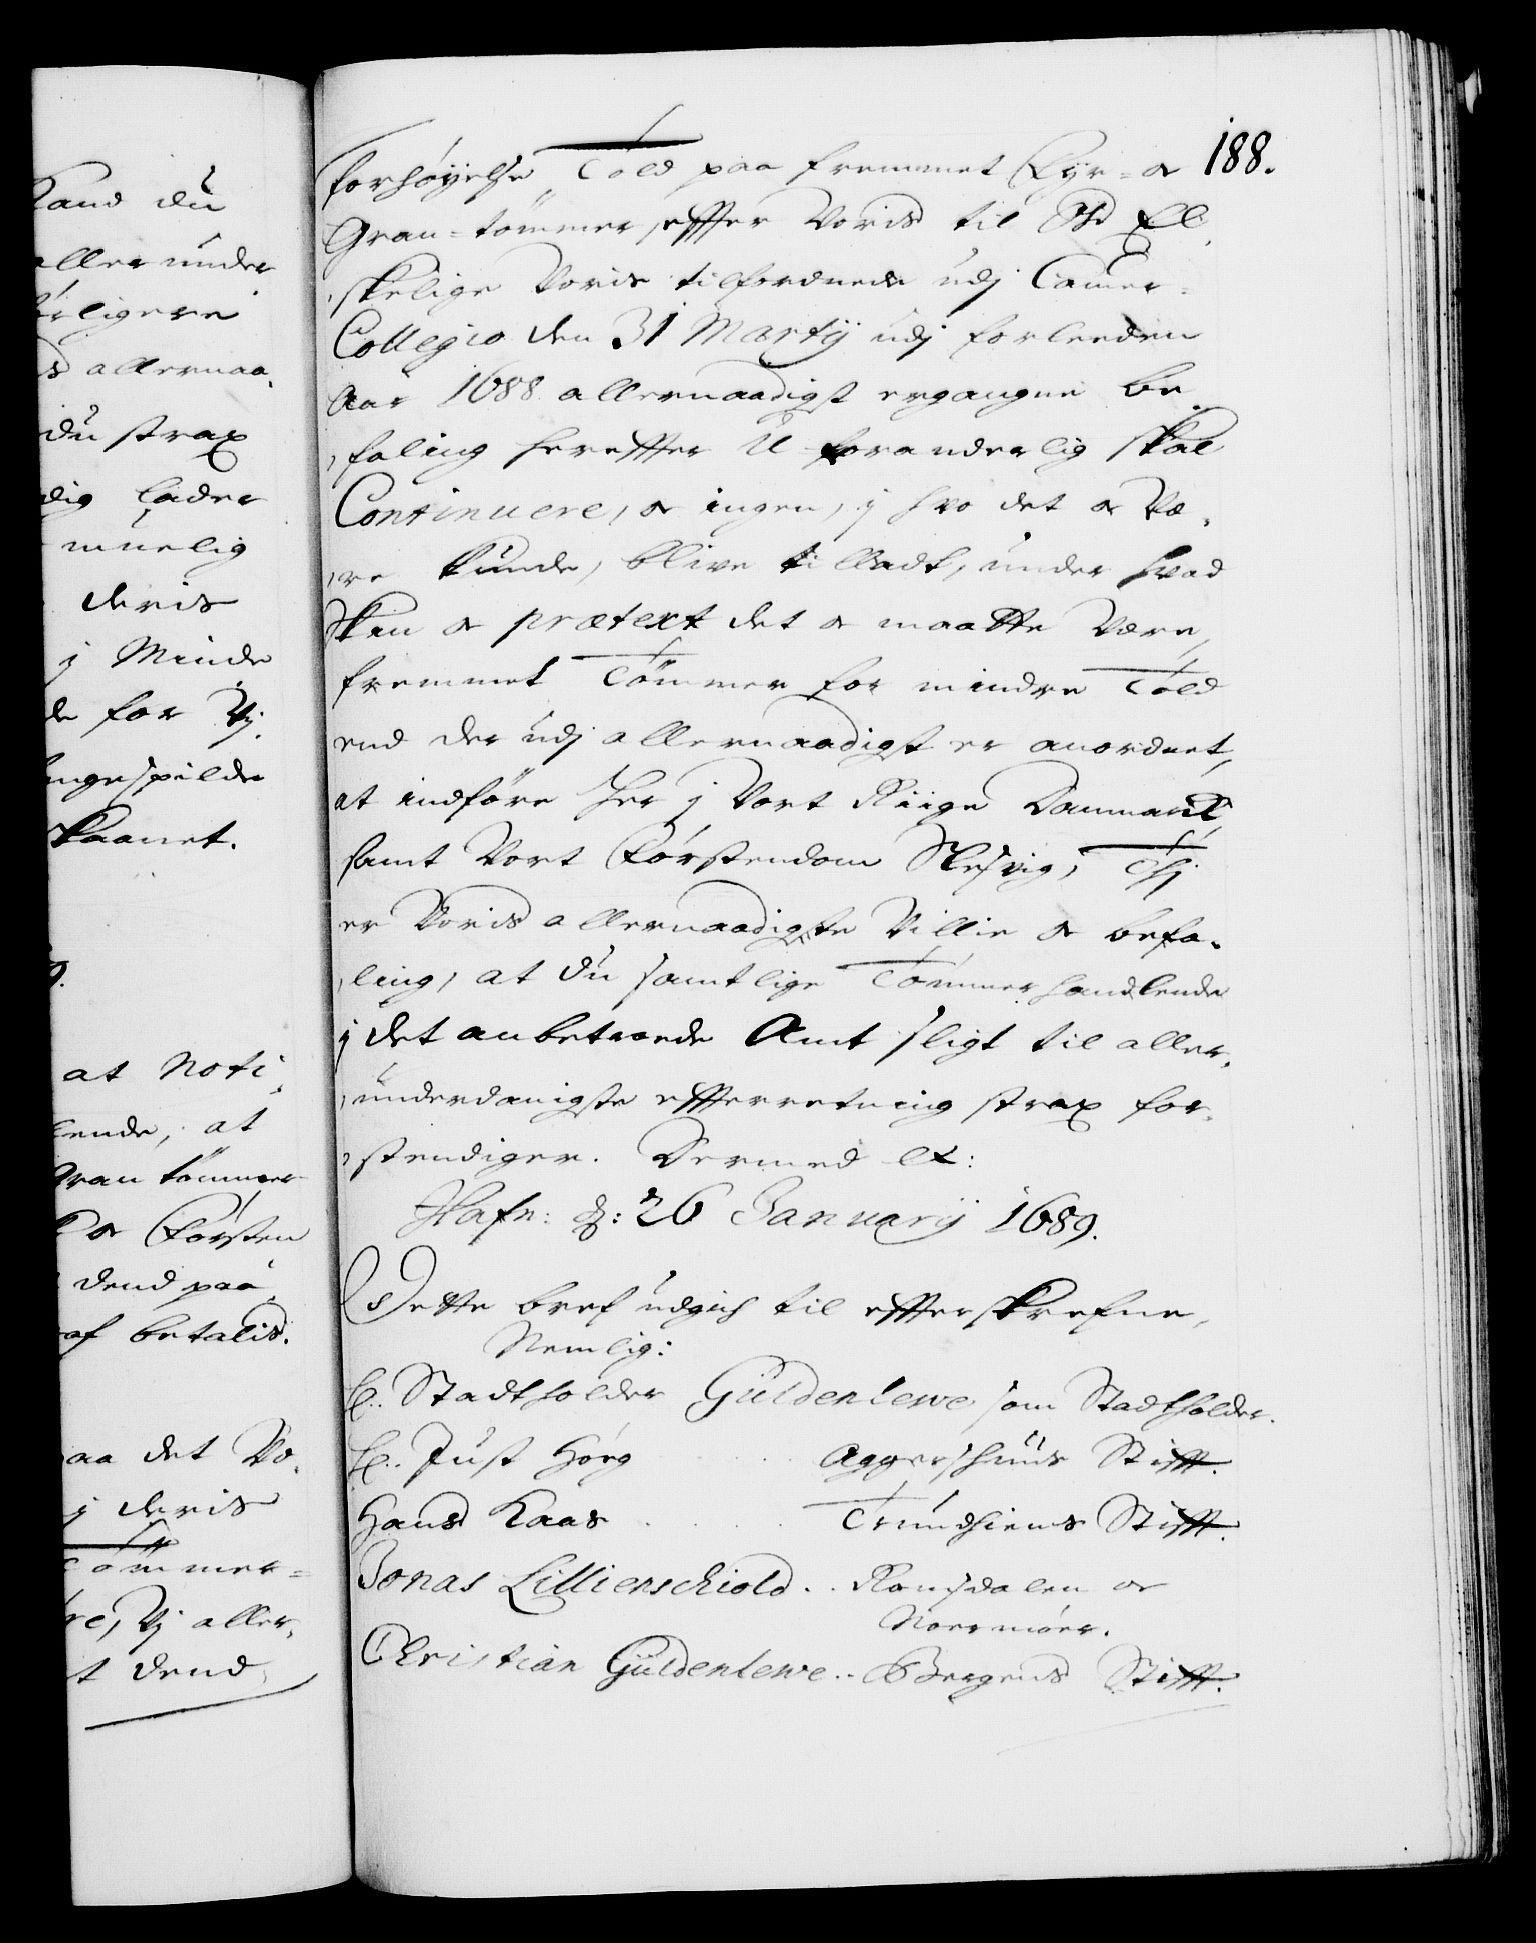 Kand du
aller under
ds allernaa,
du strax
dig lader
muelig
deris
j Minde
de for Vj
ungespilde
skaanet.
at Noti,
lende, at
Gran tømmer
og Førsten
dend paa
af betalis.
paa det Vo,
j deris
Tømmer=
re, Vj aller,
t dend
188.
forhøyelse Told paa fremmet Fyr= og
Gran=tømmer, effter Voris til Os El,
,skelige Voris tilforordnede udj Camer=
Collegio den 31 Martij udj forleeden
Aar 1688 allernaadigst ergangne be,
,faling hereffter U-foranderlig skal
Continuere, og ingen, j hvo det og Væ,
,re kunde, blive tilladt, under hvad
Skin og prætext det og maatte Være,
fremmet Tømmer for mindre Told
end der udj allernaadigst er anordnet,
at indføre her j Vort Riige Danmark
samt Vort Førstendom Slesvig, Thj
er Voris allernaadigste Villie og befa,
,ling, at du samtlige Tømmerhandlende
j det anbetroede Amt sligt til aller,
,underdanigste effterretning strax for,
,stendiger. Dermed etc:
Hafn: d: 26 Januarij 1689.
Dette bref udgich til effterskrefne,
Nemlig:
H. Stadtholder Güldenlewe som Stadtholder.
H. Just Høeg . . . Aggershuus Stifft.
Hans Kaas . . . Trundhiems Stifft.
Jonas Lillienschiold . . Romsdalen og
Noermøer.
Christian Güldenlewe . . Bergens Stifft.